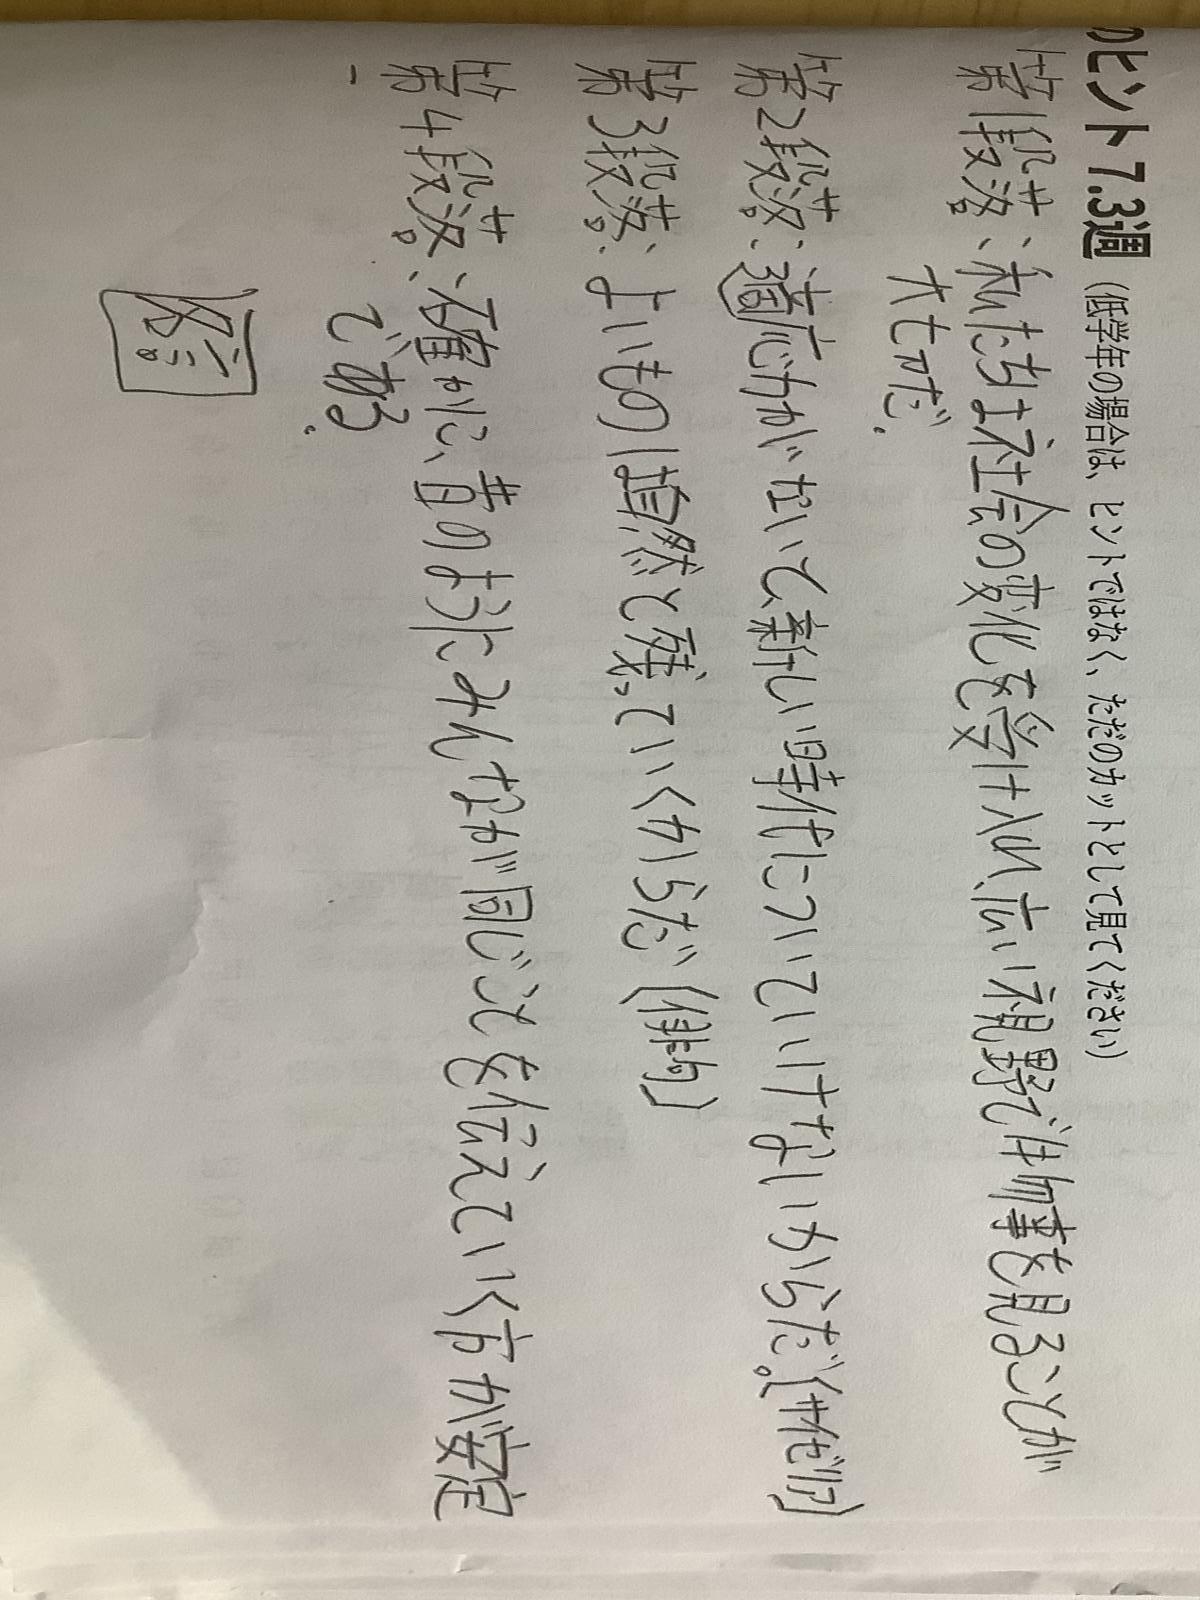 のヒント 7.3週 (低学年の場合は、ヒントではなく、ただのカットとして見てください)
第1段落、私たちは社会の変化を受け入れ、広い視野で物事を見ることが
大せつだ.
第2段落、適応力がないと、新しい時代についていけないからだ。(サイゼリア)
第3段落、よいものは自然と残っていくからだ(俳句)
第4段落、確かに、昔のようにみんなが同じことを伝えていく方が安定
である.